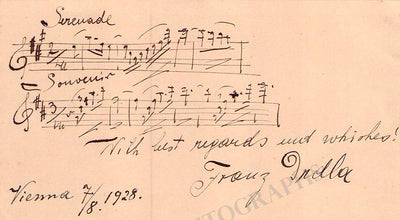 Serenade
Souvenir
With best regards und whishes!
Franz Drdla
Vienna 7/8. 1928.